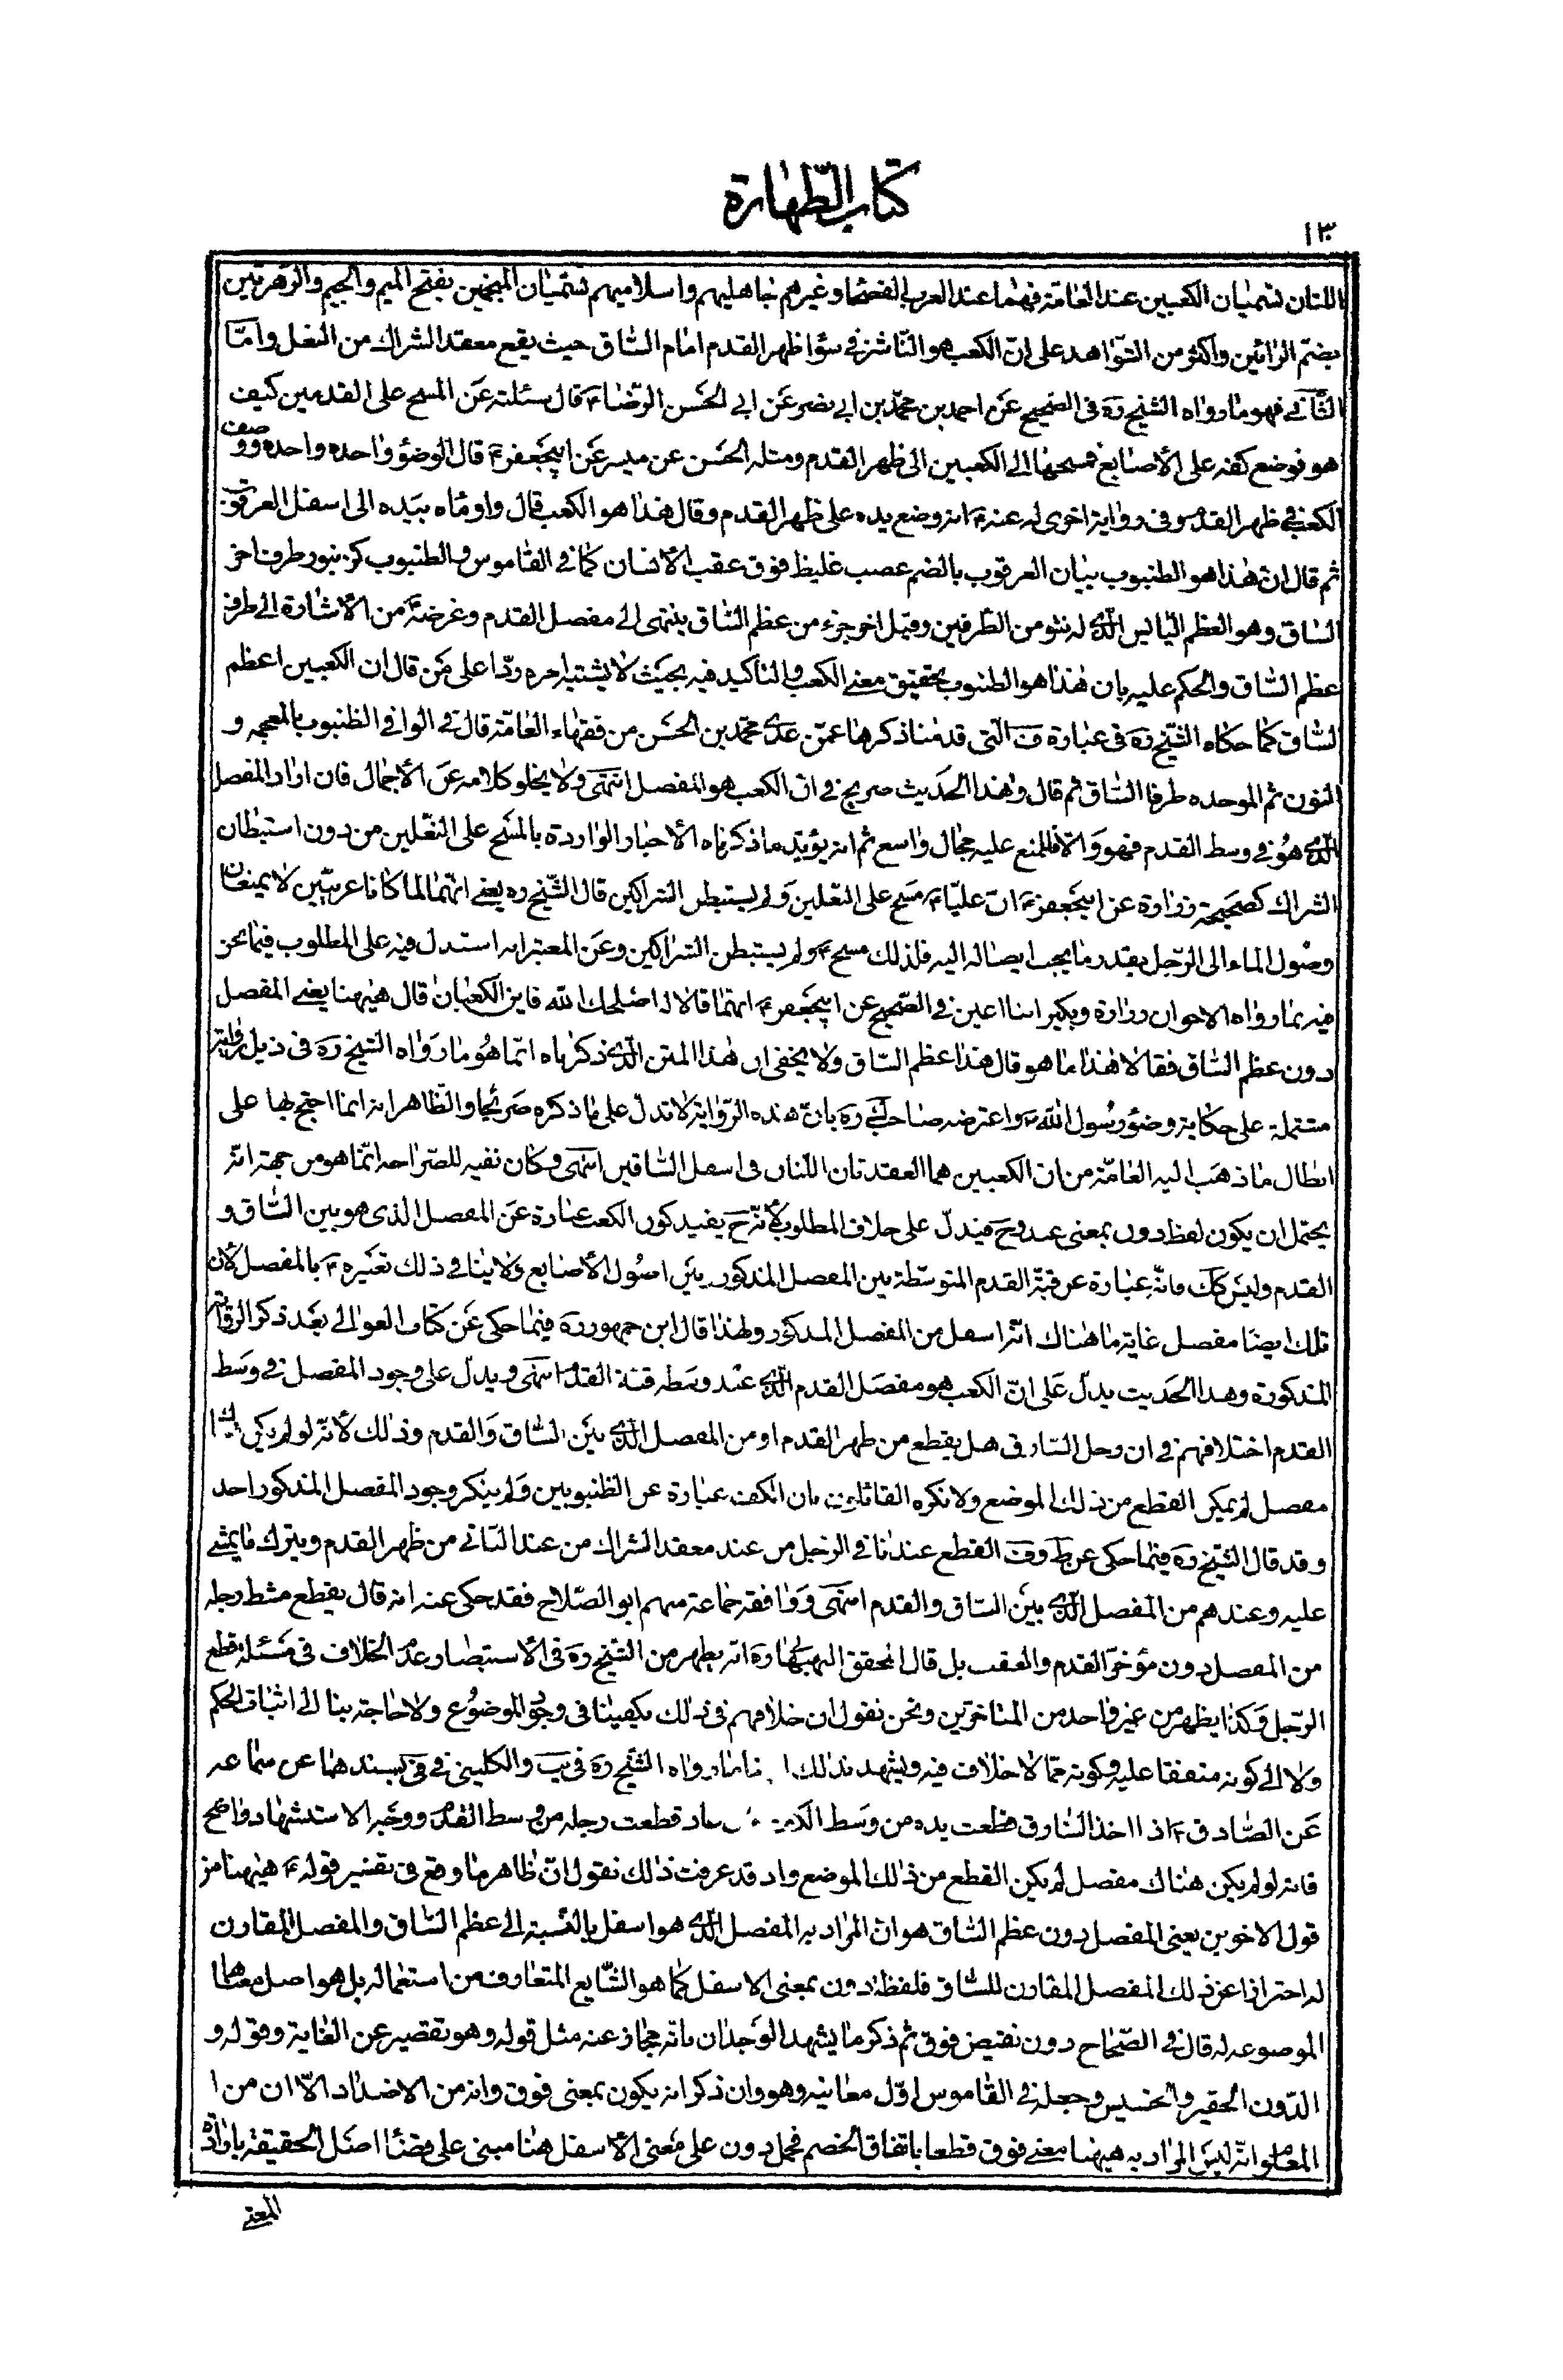 كتاب الطهارة
١٣
اللتان تسميان الكعبين عند العامة فهما عند العرب الفصحاء وغيرهم جاهليهم واسلاميهم تسميان المنجمين بفتح الميم والجيم والرهرتين
بضم الرائين واكثر من الشواهد على ان الكعب هو الناشز في سواء ظهر القدم امام الساق حيث يقع معقد الشراك من النعل واما
الثاني فهو ما رواه الشيخ ره في الصحيح عن احمد بن محمد بن ابي نصر عن ابي الحسن الرضا ع قال سئلته عن المسح على القدمين كيف
هو فوضع كفه على الأصابع فمسحها الى الكعبين الى ظهر القدم ومثله الحسن عن ميسر عن ابيجعفر ع قال الوضؤ واحده واحده ووصف
الكعب في ظهر القدم وفي رواية اخرى له عنه ع انه وضع يده على ظهر القدم وقال هذا هو الكعب قال واومأه بيده الى اسفل العرقوب
ثم قال ان هذا هو الطنبوب بيان العرقوب بالضم عصب غليظ فوق عقب الأنسان كما في القاموس والطنبوب كزنبور طرف اخر
الساق وهو العظم اليابس الذي له نتو من الطرفين وقيل اخر جزء من عظم الساق ينتهى الى مفصل القدم وغرضه ع من الأشارة الى طرف
عظم الساق والحكم عليه بان هذا هو الطنبوب تحقيق معنى الكعب والتاكيد فيه بحيث لا يشتبه امره ردا على من قال ان الكعبين اعظم
لساق كما حكاه الشيخ ره في عبارة ف التي قدمنا ذكرها عمن عدى محمد بن الحسن من فقهاء العامة قال في الوافي الظنبوب بالمعجمه و
النون ثم الموحده طرفا الساق ثم قال وهذا الحديث صريح في ان الكعب هو المفصل انتهى ولا يخلو كلامه عن الأجمال فان اراد المفصل
الذي هو في وسط القدم فهو والا فللمنع عليه مجال واسع ثم انه يؤيد ما ذكرناه الأخبار الواردة بالمسح على النعلين من دون استبطان
الشراك كصحيحة زرارة عن ابيجعفر ع ان عليا ع مسح على النعلين ولم يستبطن الشراكين قال الشيخ ره يعنى انهما لما كانا عربيين لا يمنعان
وصول الماء الى الرجل بقدر ما يجب ايصاله اليه فلذلك مسح ع ولم يستبطن الشراكين وعن المعتبر انه استدل فيه على المطلوب فيما نحن
فيه بما رواه الاخوان زرارة وبكير ابنا اعين في الصحيح عن ابيجعفر ع انهما قالا له اصلحك الله فاين الكعبان قال هيهنا يعنى المفصل
دون عظم الساق فقالا هذا ما هو قال هذا عظم الساق ولا يخفى ان هذا المتن الذي ذكرناه انما هو ما رواه الشيخ ره في ذيل رواية
مشتملة على حكاية وضؤ رسول الله ص واعترضه صاحب ك ره بان هذه الرواية لا تدل على ما ذكره صريحا والظاهر انه انما احتج بها على
ابطال ما ذهب اليه العامة من ان الكعبين هما العقدتان اللتان في اسفل الساقين انتهى وكان نفيه للصراحه انما هو من جهة انه
يحتمل ان يكون لفظ دون بمعنى عند وح فيدل على خلاف المطلوب لأنه ح يفيد كون الكعب عبارة عن المفصل الذى هو بين الساق و
القدم وليس كك فانه عبارة عن قبة القدم المتوسطة بين المفصل المذكور بين اصول الأصابع ولا ينافي ذلك تعبيره ع بالمفصل لأن
تلك ايضا مفصل غاية ما هناك انه اسفل من المفصل المذكور ولهذا قال ابن جمهور ره فيما حكى عن كتاب العوالى بعد ذكر الرواية
المذكورة وهذا الحديث يدل على ان الكعب هو مفصل القدم الذي عند وسطه قبة القدم انتهى ويدل على وجود المفصل في وسط
القدم اختلافهم في ان رجل السارق هل يقطع من ظهر القدم او من المفصل الذي بين الساق والقدم وذلك لأنه لو لم يكن هناك
مفصل لم يمكن القطع من ذلك الموضع ولانكره القائلون بان الكعب عبارة عن الظنبوبين ولم ينكر وجود المفصل المذكور احد
وقد قال الشيخ ره فيما حكى عن ط وف القطع عندنا في الرجل من عند معقد الشراك من عند الناتي من ظهر القدم ويترك ما يمشى
عليه وعندهم من المفصل الذي بين الساق والقدم انتهى ووافقه جماعة منهم ابو الصلاح فقد حكى عنه انه قال يقطع مشط رجله
من المفصل دون مؤخر القدم والعقب بل قال المحقق البهبهاني ره انه يظهر من الشيخ ره في الأستبصار عدم الخلاف في مسئلة قطع
الرجل وكذا يظهر من غير واحد من المتاخرين ونحن نقول ان خلافهم في ذلك يكفينا في وجود الموضوع ولا حاجة بنا الى اثبات الحكم
ولا الى كونه متفقا عليه وكونه مما لا خلاف فيه ويشهد بذلك ما رواه الشيخ ره في يب والكليني في في بسندهما عن سماعه
عن الصادق ع اذا اخذ السارق قطعت يده من وسط الكف عاد قطعت رجله من وسط القدم ووجه الاستشهاد واضح
فانه لو لم يكن هناك مفصل لم يكن القطع من ذلك الموضع واذ قد عرفت ذلك نقول ان ظاهر ما وقع في تفسير قوله ع هيهنا من
قول الاخوين يعنى المفصل دون عظم الساق هو ان المراد به المفصل الذي هو اسفل بالنسبة الى عظم الساق والمفصل المقارن
له احترازا عن ذلك المفصل المقارن للساق فلفظة دون بمعنى الاسفل كما هو الشايع المتعارف من استعماله بل هو اصل معناها
الموضوعه له قال في الصحاح دون نقيض فوق ثم ذكر ما يشهد الوجدان بانه مجاز عنه مثل قوله وهو تقصير عن الغاية وقوله و
الدون الحقير والخسيس وجعله في القاموس اول معانيه وهو وان ذكر انه يكون بمعنى فوق وانه من الاضداد الا ان من
المعلوم انه ليس المراد به هيهنا معنى فوق قطعا باتفاق الخصم فحمل دون على معنى الأسفل هنا مبنى على قضاء اصل الحقيقة بارادة
المعنى